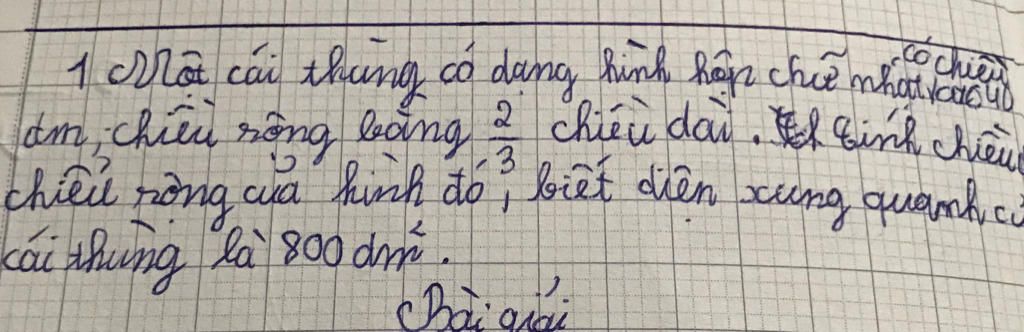 1 Một cái thùng có dạng hình hộp chữ nhật, có chiều cao 40
dm, chiều rộng bằng 2/3 chiều dài. Tính chiều
chiều rộng của hình đó, biết diện xung quanh
cái thùng là 800 dm².
Bài giải